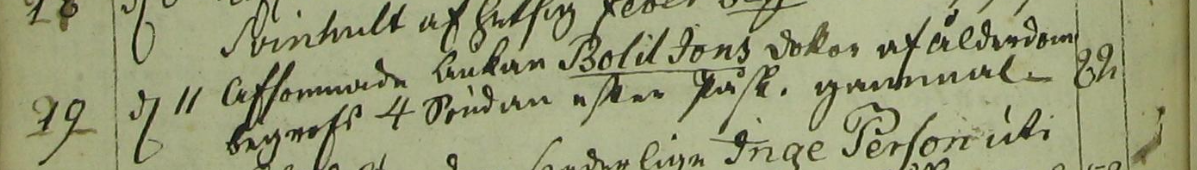 Svinhult af hetsig feber
19 d 11 Afsomnade Änkan Bolil Jons dotter af ålderdom
begrofs 4 Söndan efter Påsk. gammal 82
Inge Person uti